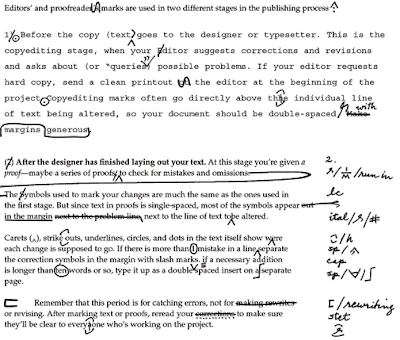 Editors' and proofreader marks are used in two different stages in the publishing process
1) Before the copy (text) goes to the designer or typesetter. This is the
copyediting stage, when your Editor suggests corrections and revisions
and asks about (or "queries") possible problems. If your editor requests
hard copy, send a clean printout the editor at the beginning of the
project. Copyediting marks often go directly above the individual line
with
of text being altered, so your document should be double-spaced Make
margins generous.
2) After the designer has finished laying out your text. At this stage you're given a
proof—maybe a series of proofs, to check for mistakes and omissions.
2.
run in
The Symbols used to mark your changes are much the same as the ones used in
lc
the first stage. But since text in proofs is single-spaced, most of the symbols appear out
s
in the margin next to the problem line, next to the line of text tobe altered.
ital/s/#
Carets (^), strike outs, underlines, circles, and dots in the text itself show were
/h
each change is supposed to go. If there is more than 1 mistake in a line, separate
sp/
the correction symbols in the margin with slash marks. if a necessary addition
cap
is longer than ten words or so, type it up as a double spaced insert on a separate
sp/
page.
Remember that this period is for catching errors, not for making rewrites
[/rewriting
or revising. After marking text or proofs, reread your corrections to make sure
stet
they'll be clear to everyone who's working on the project.